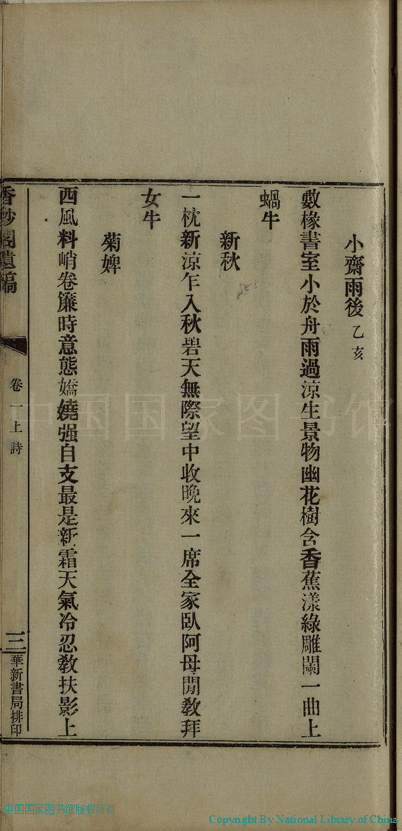 小齋雨後 乙亥
數椽書室小於舟雨過涼生景物幽花樹含香蕉漾綠雕闌一曲上
蝸牛
新秋
一枕新涼乍入秋碧天無際望中收晚來一席全家臥阿母閒教拜
女牛
菊婢
西風料峭卷簾時意態嬌嬈强自支最是新霜天氣冷忍教扶影上
卷一上 詩
三
華新書局排印
中国国家图书馆
中国国家图书馆版权所有
Copyright By National Library of China